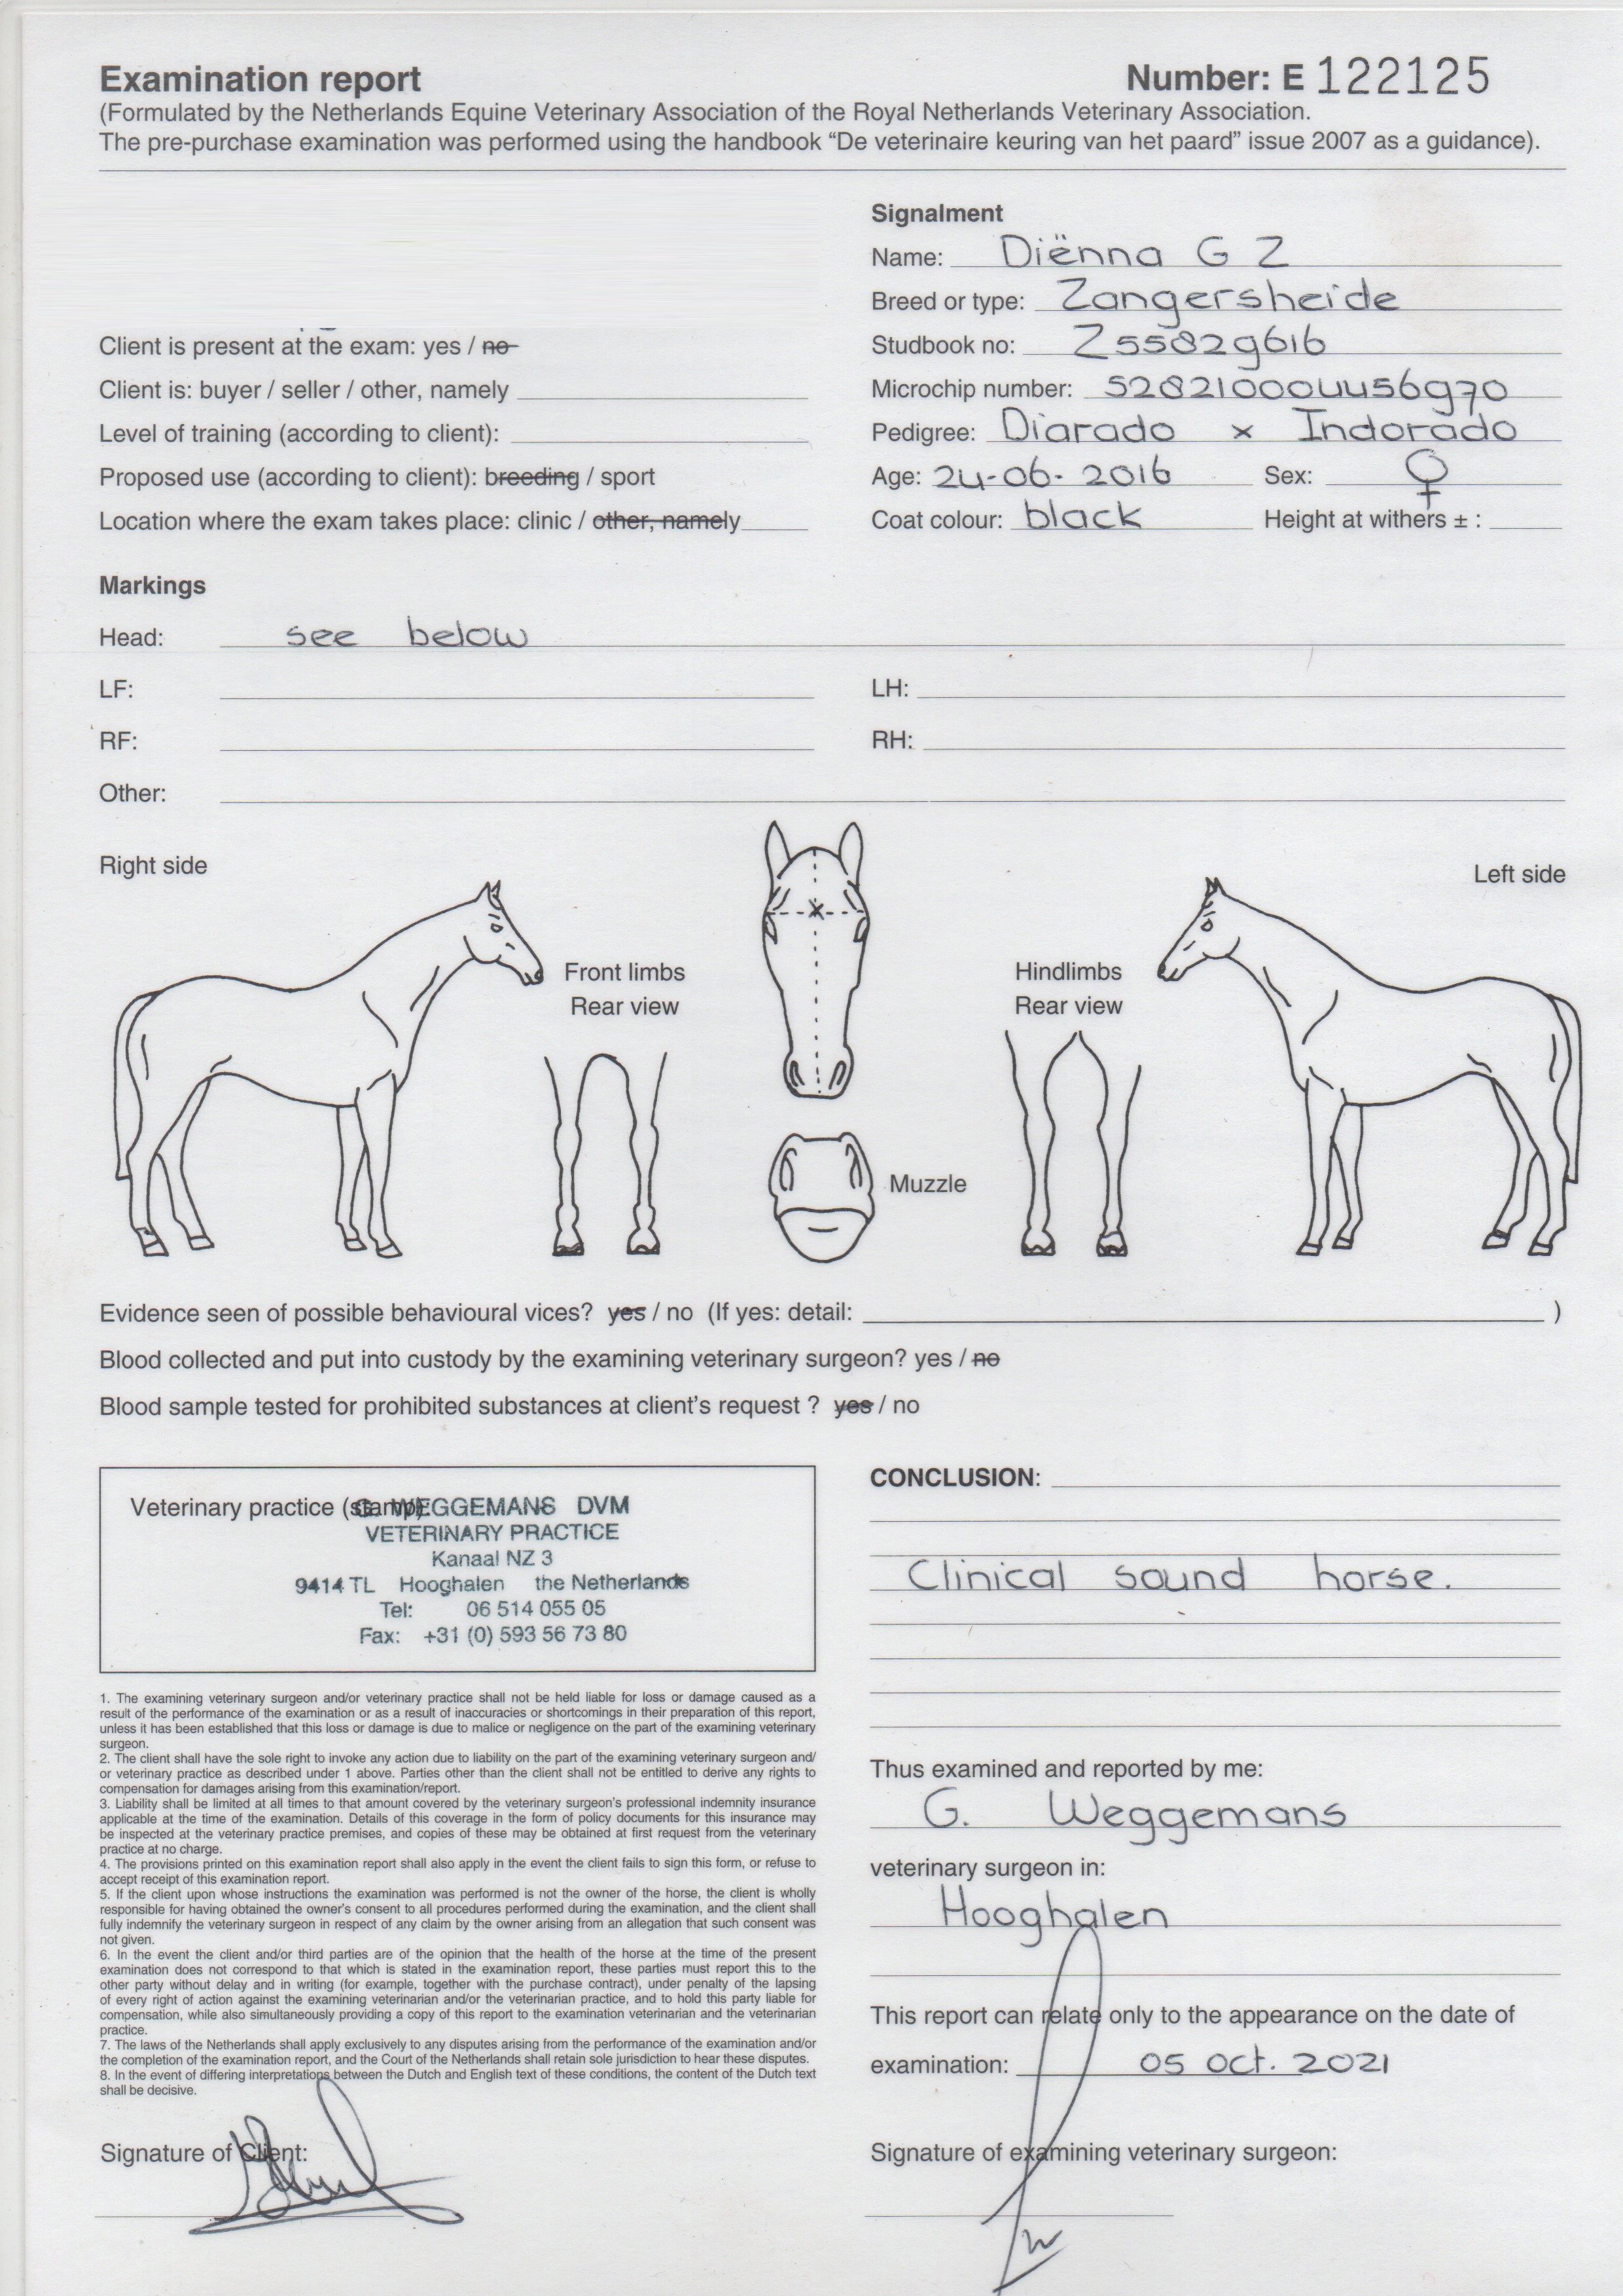 Examination report
Number: E 122125
(Formulated by the Netherlands Equine Veterinary Association of the Royal Netherlands Veterinary Association.
The pre-purchase examination was performed using the handbook “De veterinaire keuring van het paard” issue 2007 as a guidance).
Signalment
Name: Diënna G Z
Breed or type: Zangersheide
Client is present at the exam: yes / no
Studbook no: Z5582g616
Client is: buyer / seller / other, namely
Microchip number: 528210004456970
Level of training (according to client):
Pedigree: Diarado x Indorado
Proposed use (according to client): breeding / sport
Age: 24-06-2016 Sex: ♀
Location where the exam takes place: clinic / other, namely
Coat colour: black Height at withers ± :
Markings
Head: see below
LF:
LH:
RF:
RH:
Other:
Right side
Left side
Front limbs
Rear view
Hindlimbs
Rear view
Muzzle
Evidence seen of possible behavioural vices? yes / no (If yes: detail: )
Blood collected and put into custody by the examining veterinary surgeon? yes / no
Blood sample tested for prohibited substances at client's request ? yes / no
Veterinary practice (stamp):
G. WEGGEMANS DVM
VETERINARY PRACTICE
Kanaal NZ 3
9414 TL Hooghalen the Netherlands
Tel: 06 514 055 05
Fax: +31 (0) 593 56 73 80
CONCLUSION:
Clinical sound horse.
1. The examining veterinary surgeon and/or veterinary practice shall not be held liable for loss or damage caused as a
result of the performance of the examination or as a result of inaccuracies or shortcomings in their preparation of this report,
unless it has been established that this loss or damage is due to malice or negligence on the part of the examining veterinary
surgeon.
2. The client shall have the sole right to invoke any action due to liability on the part of the examining veterinary surgeon and/
or veterinary practice as described under 1 above. Parties other than the client shall not be entitled to derive any rights to
compensation for damages arising from this examination/report.
3. Liability shall be limited at all times to that amount covered by the veterinary surgeon's professional indemnity insurance
applicable at the time of the examination. Details of this coverage in the form of policy documents for this insurance may
be inspected at the veterinary practice premises, and copies of these may be obtained at first request from the veterinary
practice at no charge.
4. The provisions printed on this examination report shall also apply in the event the client fails to sign this form, or refuse to
accept receipt of this examination report.
5. If the client upon whose instructions the examination was performed is not the owner of the horse, the client is wholly
responsible for having obtained the owner's consent to all procedures performed during the examination, and the client shall
fully indemnify the veterinary surgeon in respect of any claim by the owner arising from an allegation that such consent was
not given.
6. In the event the client and/or third parties are of the opinion that the health of the horse at the time of the present
examination does not correspond to that which is stated in the examination report, these parties must report this to the
other party without delay and in writing (for example, together with the purchase contract), under penalty of the lapsing
of every right of action against the examining veterinarian and/or the veterinarian practice, and to hold this party liable for
compensation, while also simultaneously providing a copy of this report to the examination veterinarian and the veterinarian
practice.
7. The laws of the Netherlands shall apply exclusively to any disputes arising from the performance of the examination and/or
the completion of the examination report, and the Court of the Netherlands shall retain sole jurisdiction to hear these disputes.
8. In the event of differing interpretations between the Dutch and English text of these conditions, the content of the Dutch text
shall be decisive.
Thus examined and reported by me:
G. Weggemans
veterinary surgeon in:
Hooghalen
This report can relate only to the appearance on the date of
examination: 05 oct. 2021
Signature of Client:
Signature of examining veterinary surgeon: